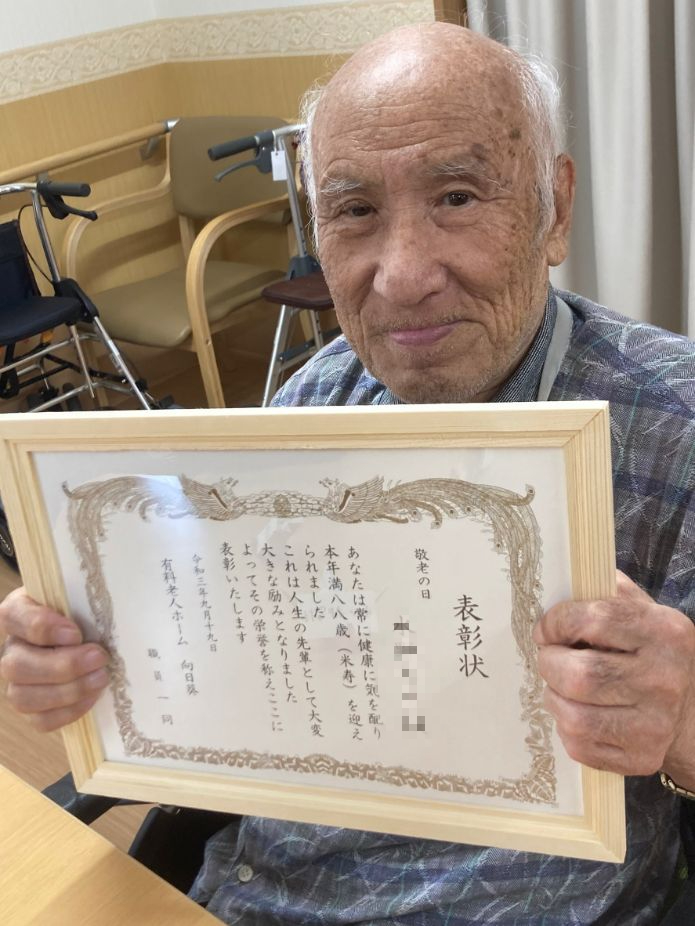 表彰状
敬老の日
あなたは常に健康に気を配り
本年満八八歳（米寿）を迎え
られました
これは人生の先輩として大変
大きな励みとなりました
よってその栄誉を称えここに
表彰いたします
令和三年九月十九日
有料老人ホーム　向日葵
職員一同